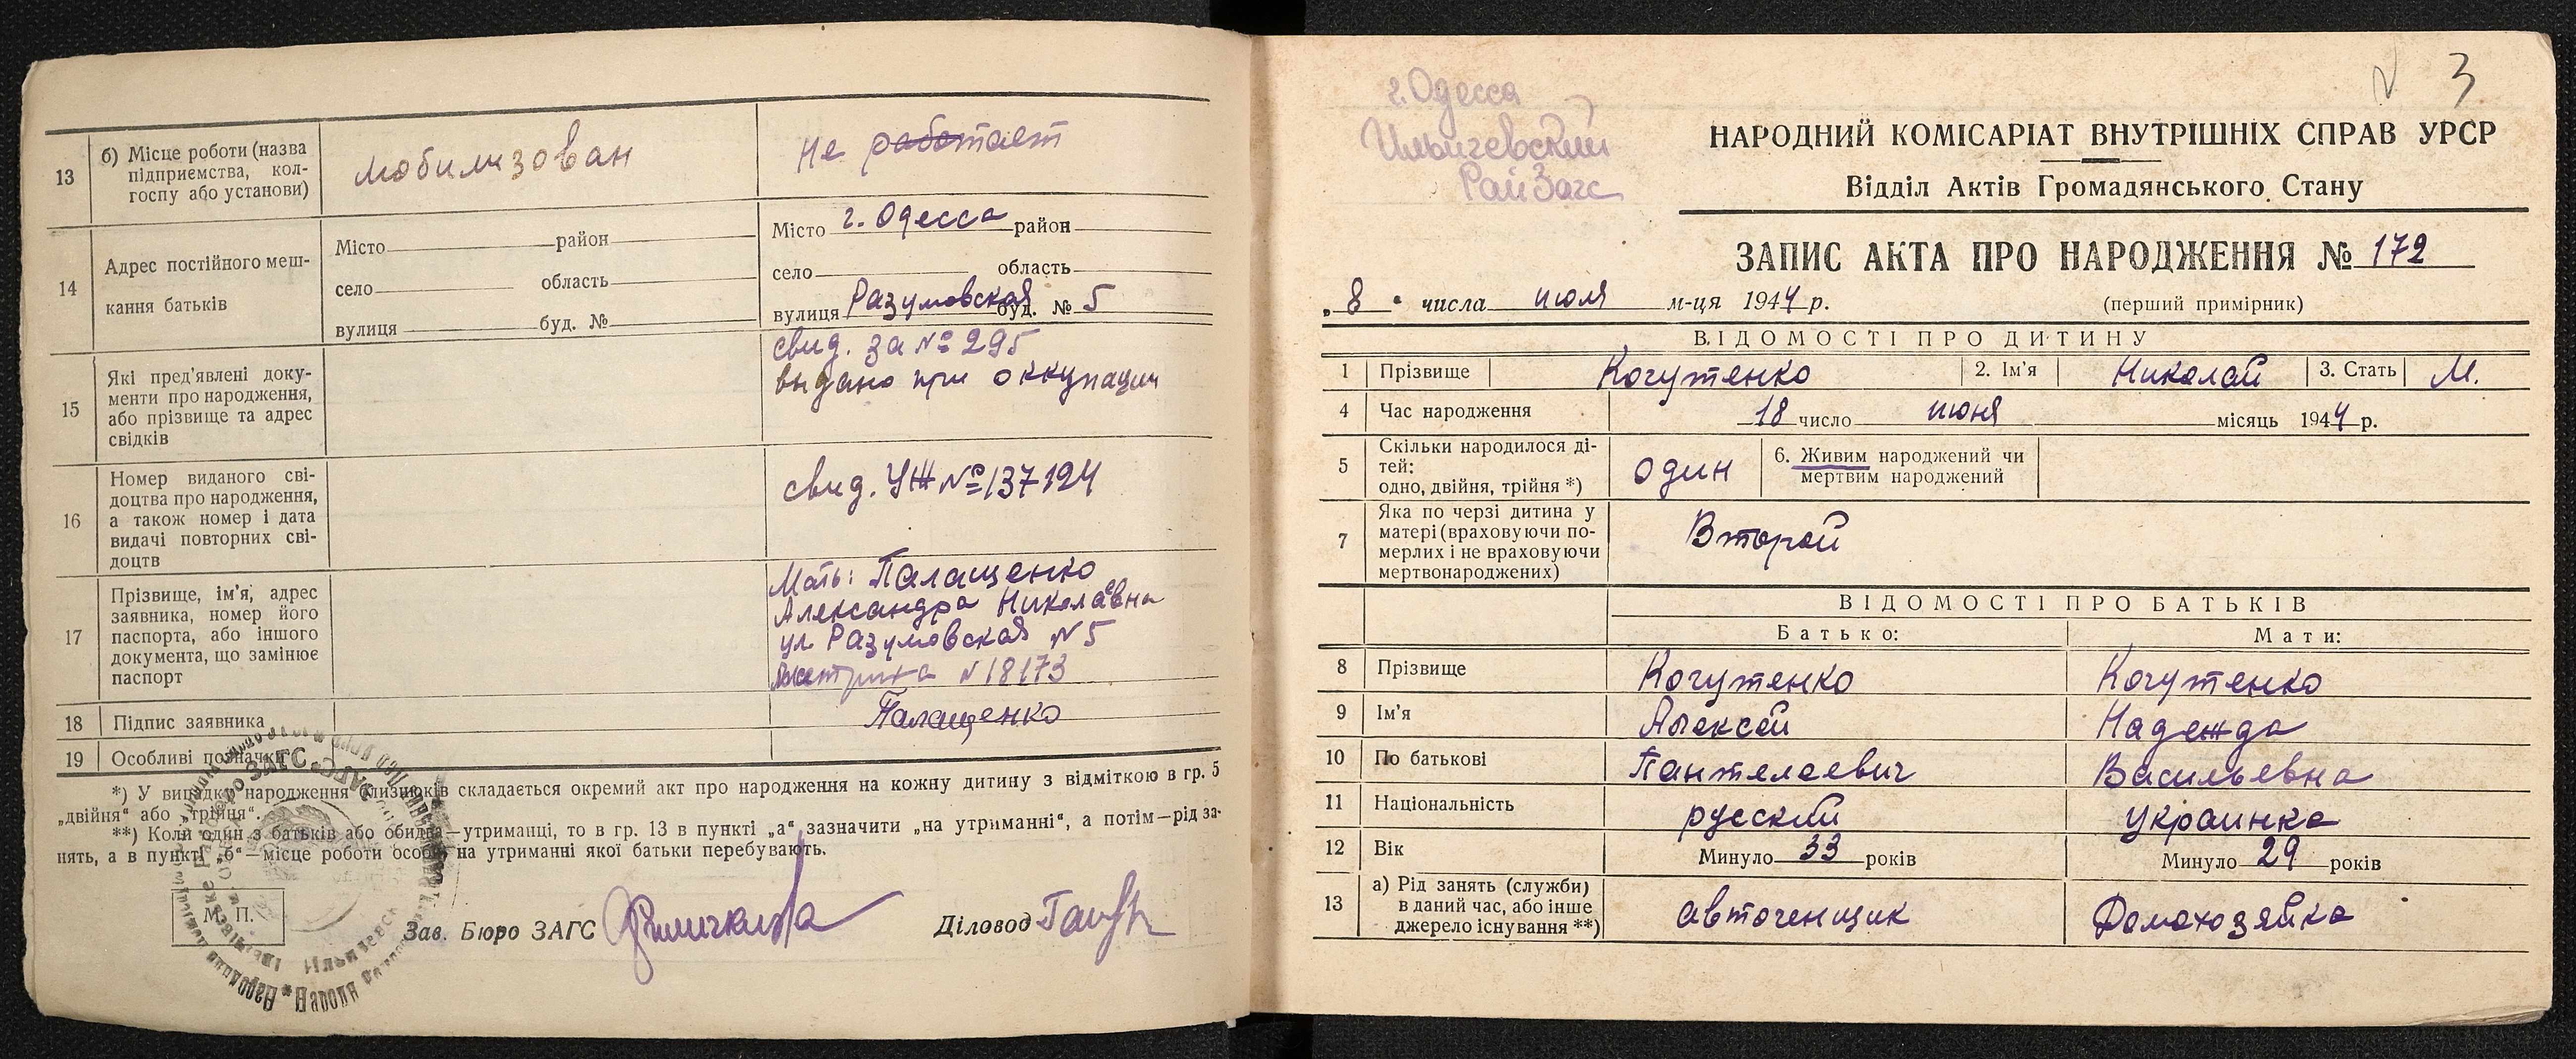 13
б) Місце роботи (назва
підприємства, кол-
госпу або установи)
мобилизован
Не работает
14
Адрес постійного меш-
кання батьків
Місто район
село область
вулиця буд. №
Місто г. Одесса район
село область
вулиця Разумовская буд. № 5
15
Які пред'явлені доку-
менти про народження,
або прізвище та адрес
свідків
свид. за № 295
выдано при оккупации
16
Номер виданого сві-
доцтва про народження,
а також номер і дата
видачі повторних сві-
доцтв
свид. УЖ № 137124
17
Прізвище, ім'я, адрес
заявника, номер його
паспорта, або іншого
документа, що замінює
паспорт
Мать: Палащенко
Александра Николаевна
ул Разумовская № 5
N 18173
18 Підпис заявника
Палащенко
19 Особливі позначки
*) У випадку народження близнюків складається окремий акт про народження на кожну дитину з відміткою в гр. 5
„двійня“ або „трійня“.
**) Коли один з батьків або обидва—утриманці, то в гр. 13 в пункті „а“ зазначити „на утриманні“, а потім—рід за-
нять, а в пункті „б“—місце роботи особи, на утриманні якої батьки перебувають.
М. П.
Зав. Бюро ЗАГС
Діловод
г. Одесса
Ильичевский
РайЗагс
N 3
НАРОДНИЙ КОМІСАРІАТ ВНУТРІШНІХ СПРАВ УРСР
Відділ Актів Громадянського Стану
ЗАПИС АКТА ПРО НАРОДЖЕННЯ № 172
„8“ числа июля м-ця 1944 р. (перший примірник)
ВІДОМОСТІ ПРО ДИТИНУ
1 Прізвище Когутенко 2. Ім'я Николай 3. Стать М.
4 Час народження 18 число июня місяць 1944 р.
5
Скільки народилося ді-
тей:
одно, двійня, трійня *)
один
6. Живим народжений чи
мертвим народжений
7
Яка по черзі дитина у
матері (враховуючи по-
мерлих і не враховуючи
мертвонароджених)
Второй
ВІДОМОСТІ ПРО БАТЬКІВ
Батько: Мати:
8 Прізвище Когутенко Когутенко
9 Ім'я Алексей Надежда
10 По батькові Пантелеевич Васильевна
11 Національність русский украинка
12 Вік Минуло 33 років Минуло 29 років
13
а) Рід занять (служби)
в даний час, або інше
джерело існування **)
автогенщик
Домохозяйка